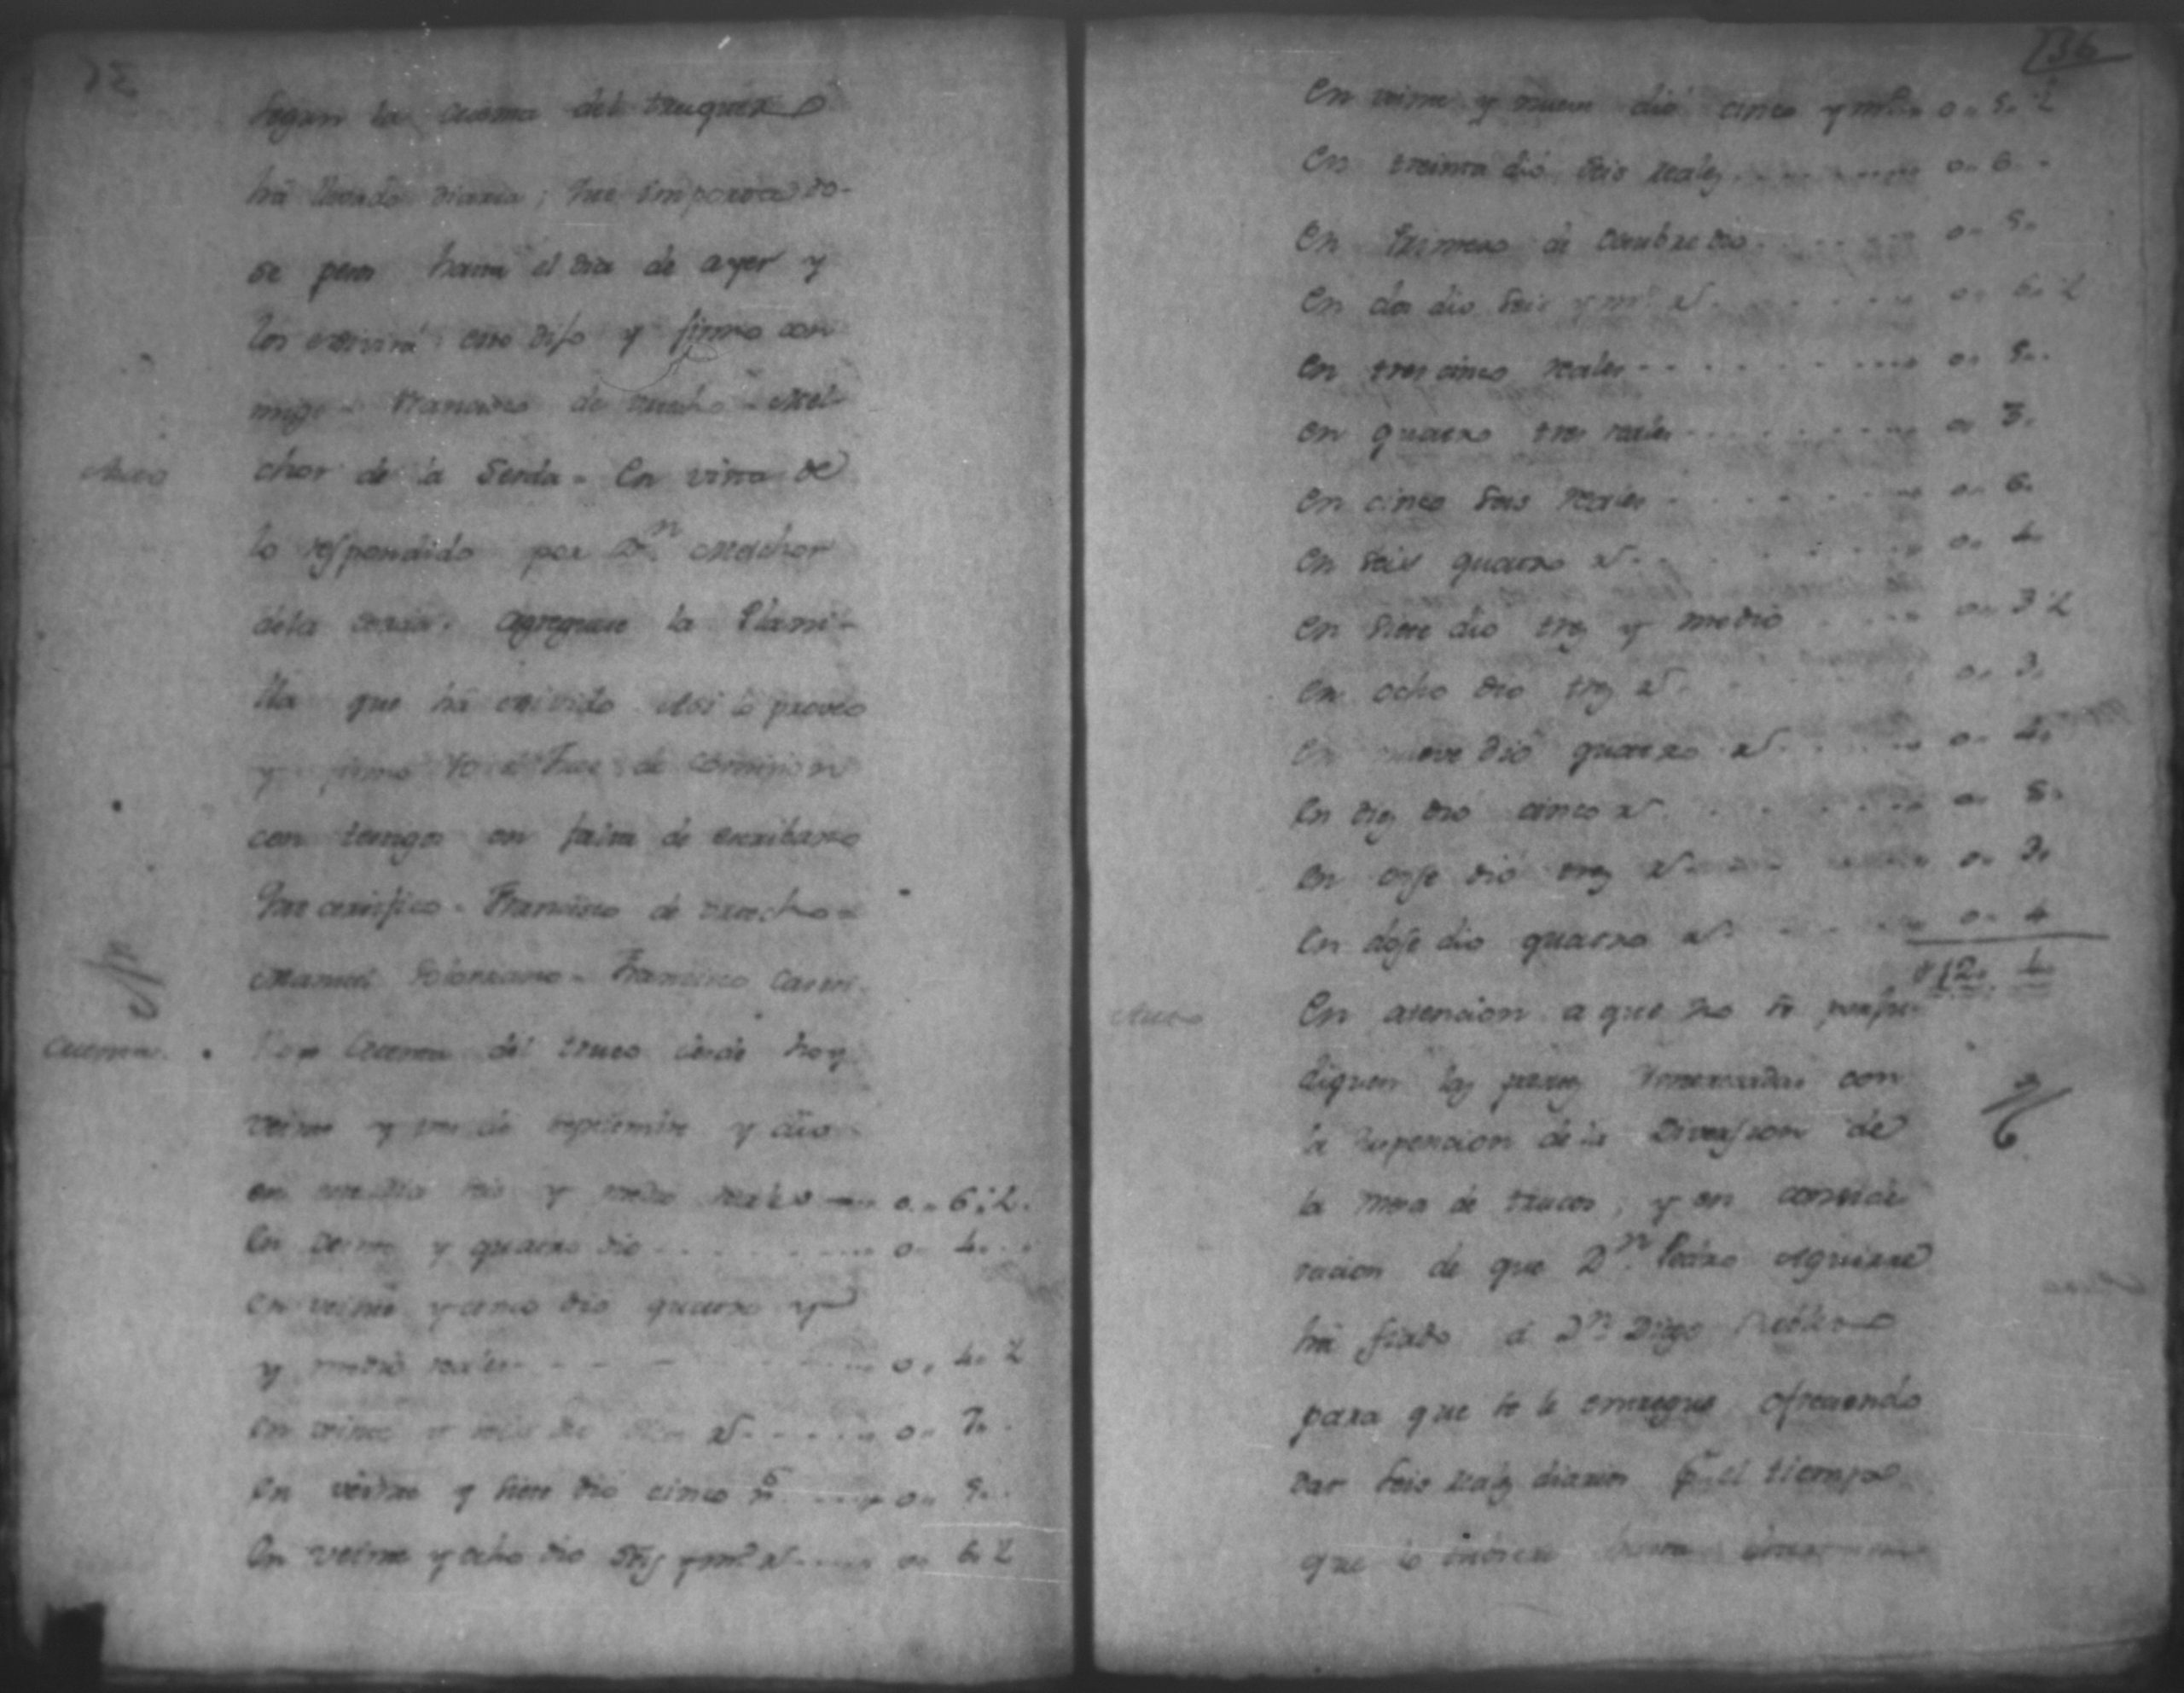 segun la cuenta del truquero
há llevado diaria; que importa do-
se pesos hasta el dia de ayer y
los exivirá esto dijo y firmo con
migo - Francisco de - Mel-
Auto
chor de la Serda - En vista de
lo respondido por Dn. Melchor
dela Cerda. agreguese la Plani-
lla que há exivido Asi lo proveo
y firmo Yo el Jues de Comision
con testigos en falta de escribano
que certifico - Francisco de
Manuel Solorzano - Francisco
Cuenta.
Cuenta del truco desde hoy
veinte y tres de septiembre y dio
en seis y medio reales o.. 6;2.
En veinte y quatro dio o.. 4..
En veinte y cinco dio quatro y
y medio reales o.. 4.. 2
En veinte y seis dio rs o.. 7..
En veinte y siete dio cinco rs. o.. 5..
En veinte y ocho dio seis y mo. rs o.. 6. 2
136
En veinte y nueve dió cinco y mo. o.. 5.. 2
En treinta dió seis reales o.. 6..
En Primero de Octubre dio o.. 5..
En dos dio seis y mo. rs o.. 6.. 2
En tres cinco reales o.. 5..
En quatro tres reales o.. 3..
En cinco seis reales o.. 6..
En seis quatro rs o.. 4..
En siete dio tres y medio o.. 3 2
En ocho dio tres rs o.. 3..
En nueve dió quatro rs o.. 4..
En dies dió cinco rs o.. 5..
En onse dió tres rs o.. 3..
En dose dio quatro rs o.. 4
12.. 4..
Auto
En atencion a que no se perju-
diquen las partes Interesadas con
la suspencion de la Diversion de
la mesa de trucos, y en conside
racion de que Dn. Pedro Aguirre
há fiado á Dn. Diego
para que se le entregue ofreciendo
dar seis reales diarios pr. el tiempo
que lo